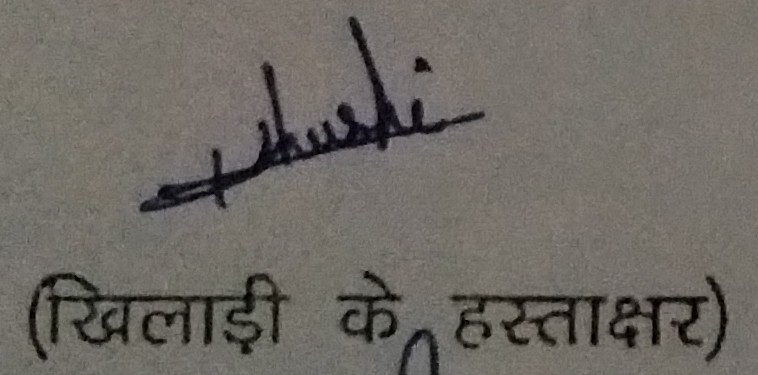 Khushi
(खिलाड़ी के हस्ताक्षर)